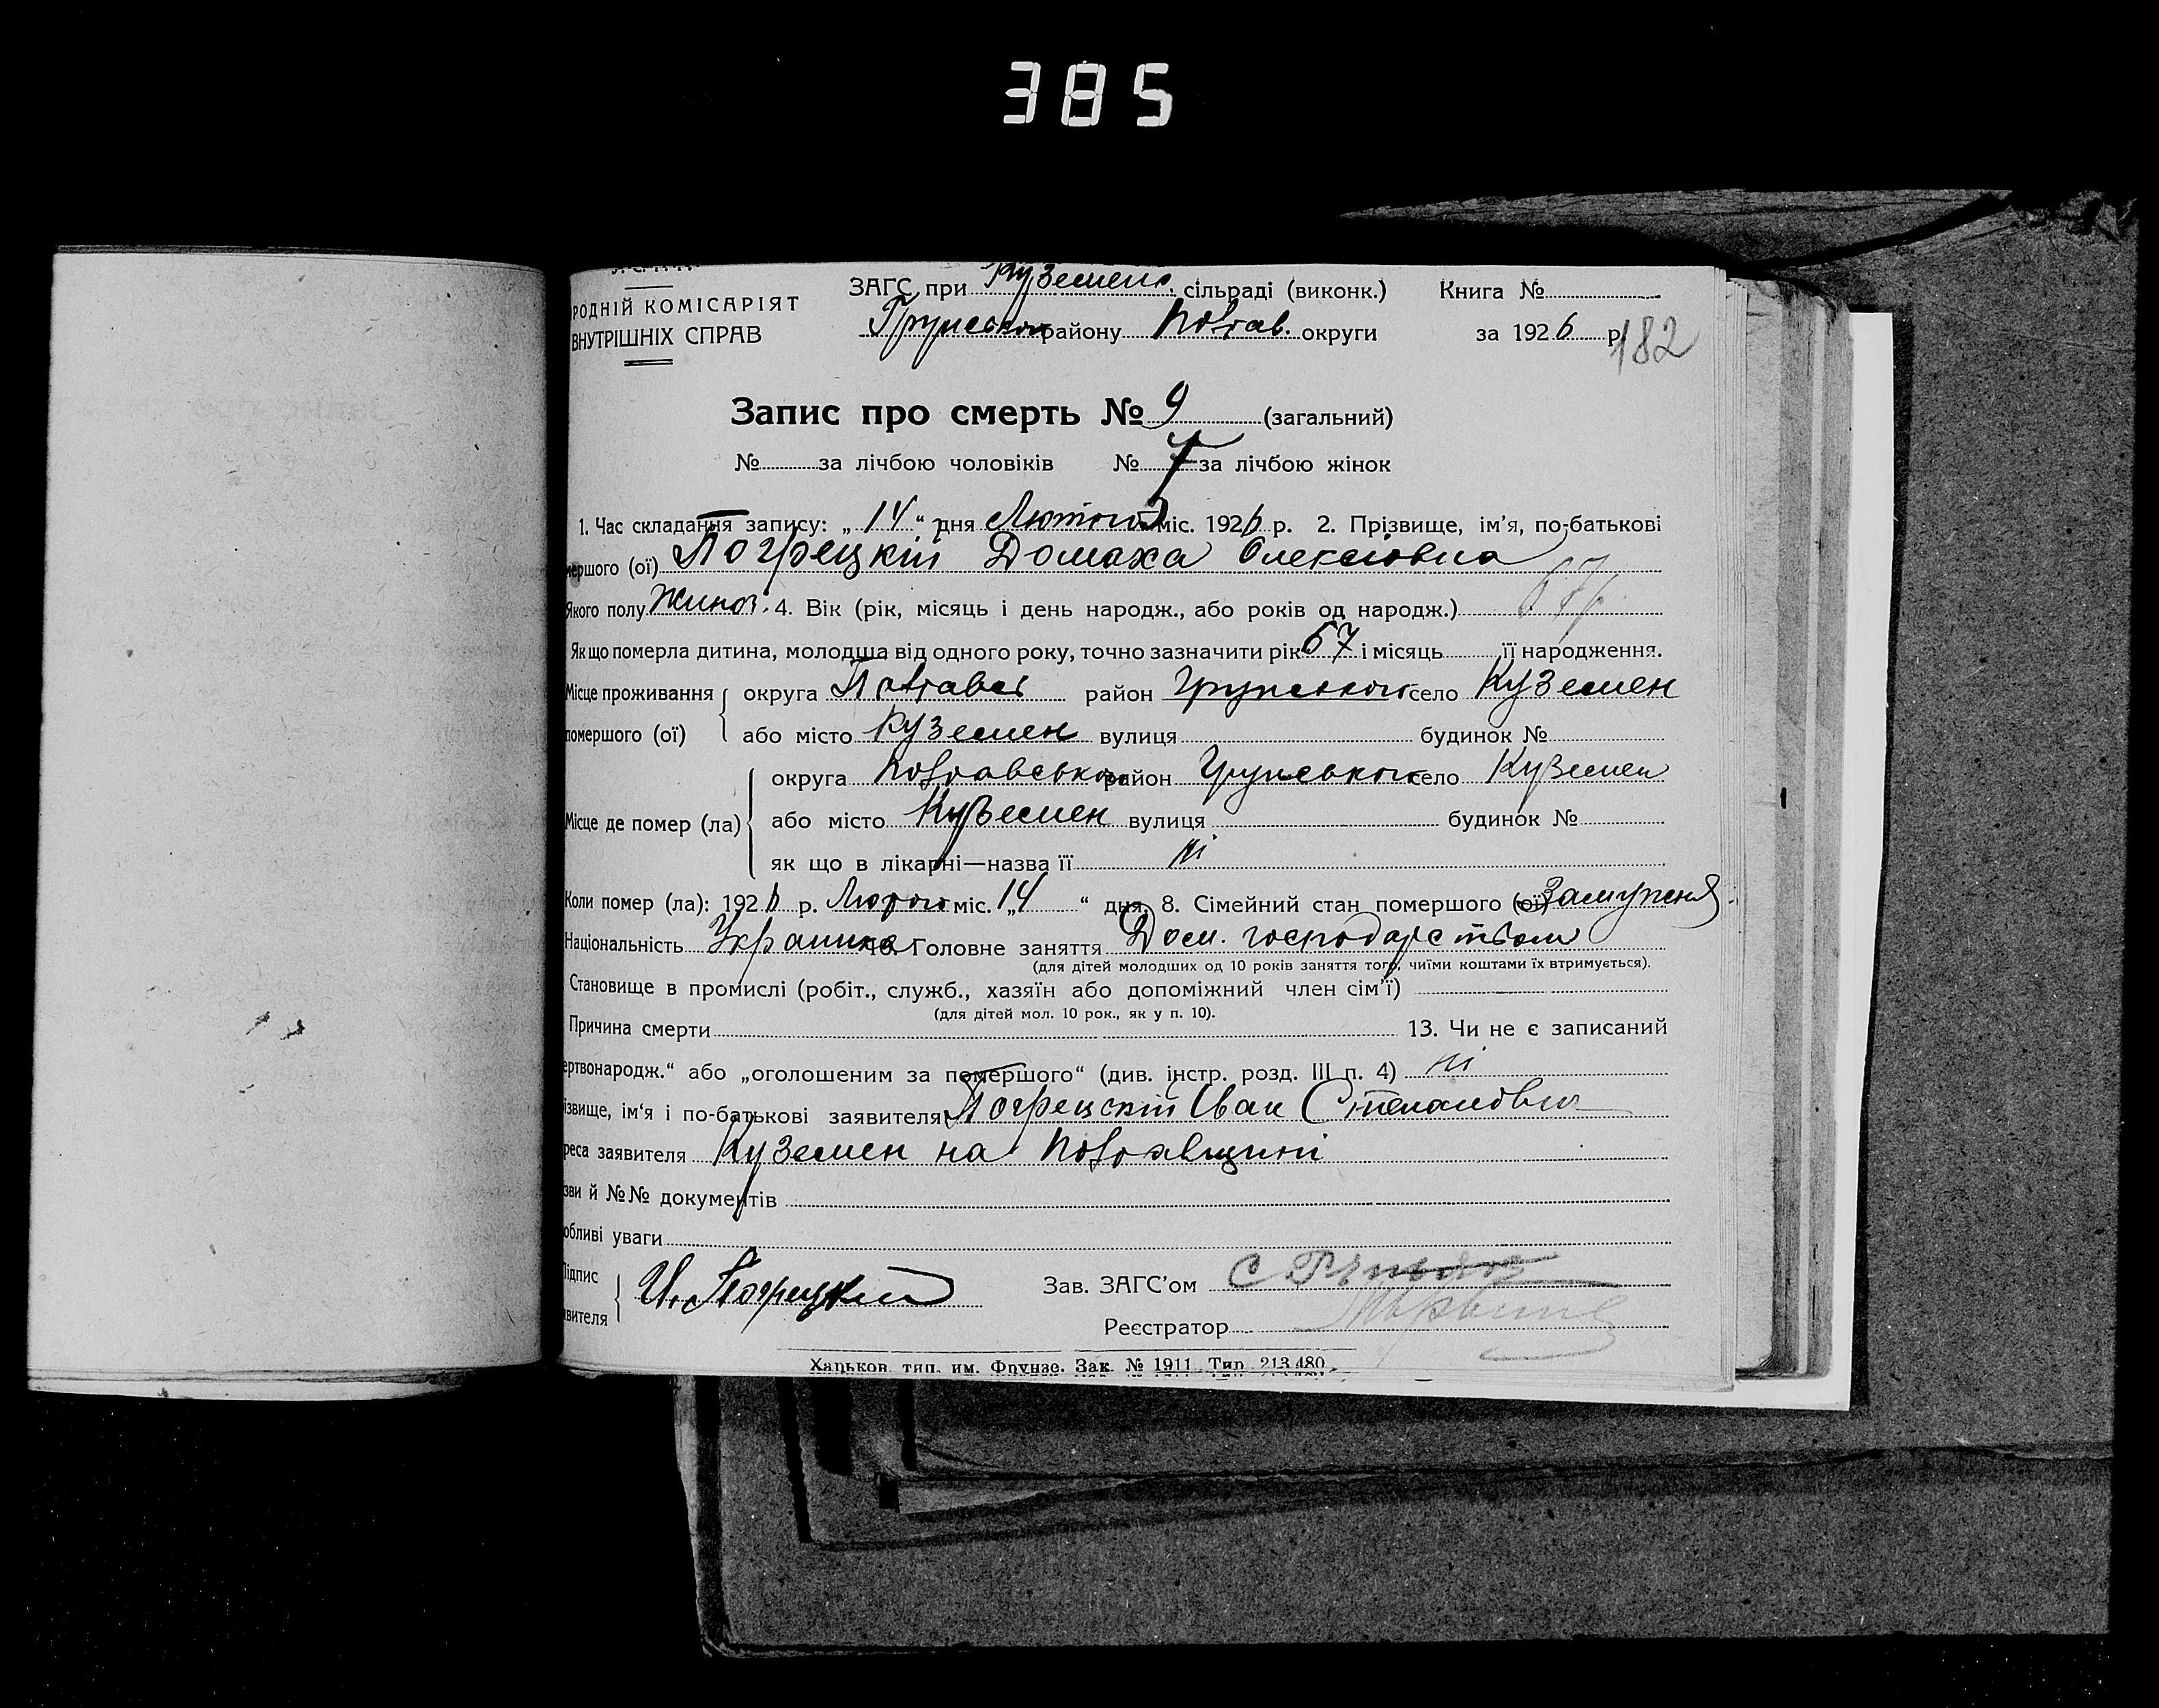 385
ЗАГС при Куземенс. сільраді (виконк.) Книга №
РОДНІЙ КОМІСАРІЯТ
ВНУТРІШНІХ СПРАВ
Грунського району Полтав. округи за 1926 р.
182
Запис про смерть № 9 (загальний)
№ за лічбою чоловіків № 7 за лічбою жінок
1. Час складання запису: „14“ дня Лютого міс. 1926 р. 2. Прізвище, ім’я, по-батькові
мершого (ої) Погрецкій Домаха Олексіовна
Якого полу Жиноч. 4. Вік (рік, місяць і день народж., або років од народж.) 67р
Як що померла дитина, молодша від одного року, точно зазначити рік 67 і місяць її народження.
Місце проживання округа Полтавсь район Грунського село Куземен
помершого (ої) або місто Куземен вулиця будинок №
округа Полтавського район Грунського село Куземен
Місце де помер (ла) або місто Куземен вулиця будинок №
як що в лікарні—назва її ні
Коли помер (ла): 1926 р. Лютого міс. „14“ дня. 8. Сімейний стан помершого (ої) Замужня
Національність Украинка 10. Головне заняття Дом. господарством
(для дітей молодших од 10 років заняття того, чиїми коштами їх втримується).
Становище в промислі (робіт., служб., хазяїн або допоміжний член сім’ї)
(для дітей мол. 10 рок., як у п. 10).
Причина смерти 13. Чи не є записаний
ертвонародж.“ або „оголошеним за помершого“ (див. інстр. розд. III п. 4) ні
ізвище, ім‘я і по-батькові заявителя Погрецскій Іван Степанович
реса заявителя Куземен на Полтавщині
зви й №№ документів
обливі уваги
Підпис
явителя И. Погрецкий
Зав. ЗАГС’ом
Реєстратор
Харьков. тип. им. Фрунзе. Зак. № 1911. Тир. 213.480.